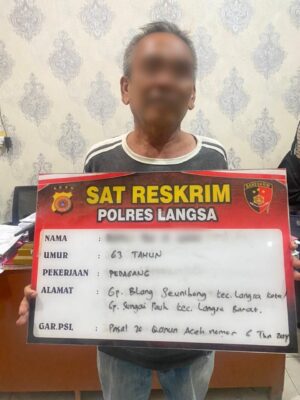 SAT RESKRIM
POLRES LANGSA
NAMA :
UMUR : 63 TAHUN
PEKERJAAN : PEDAGANG
ALAMAT : Gp. Blang Seunibong kec. Langsa kota/
Gp. Sungai Pauh kec. Langsa Barat.
GAR.PSL : Pasal 20 Qanun Aceh nomor 6 Thn